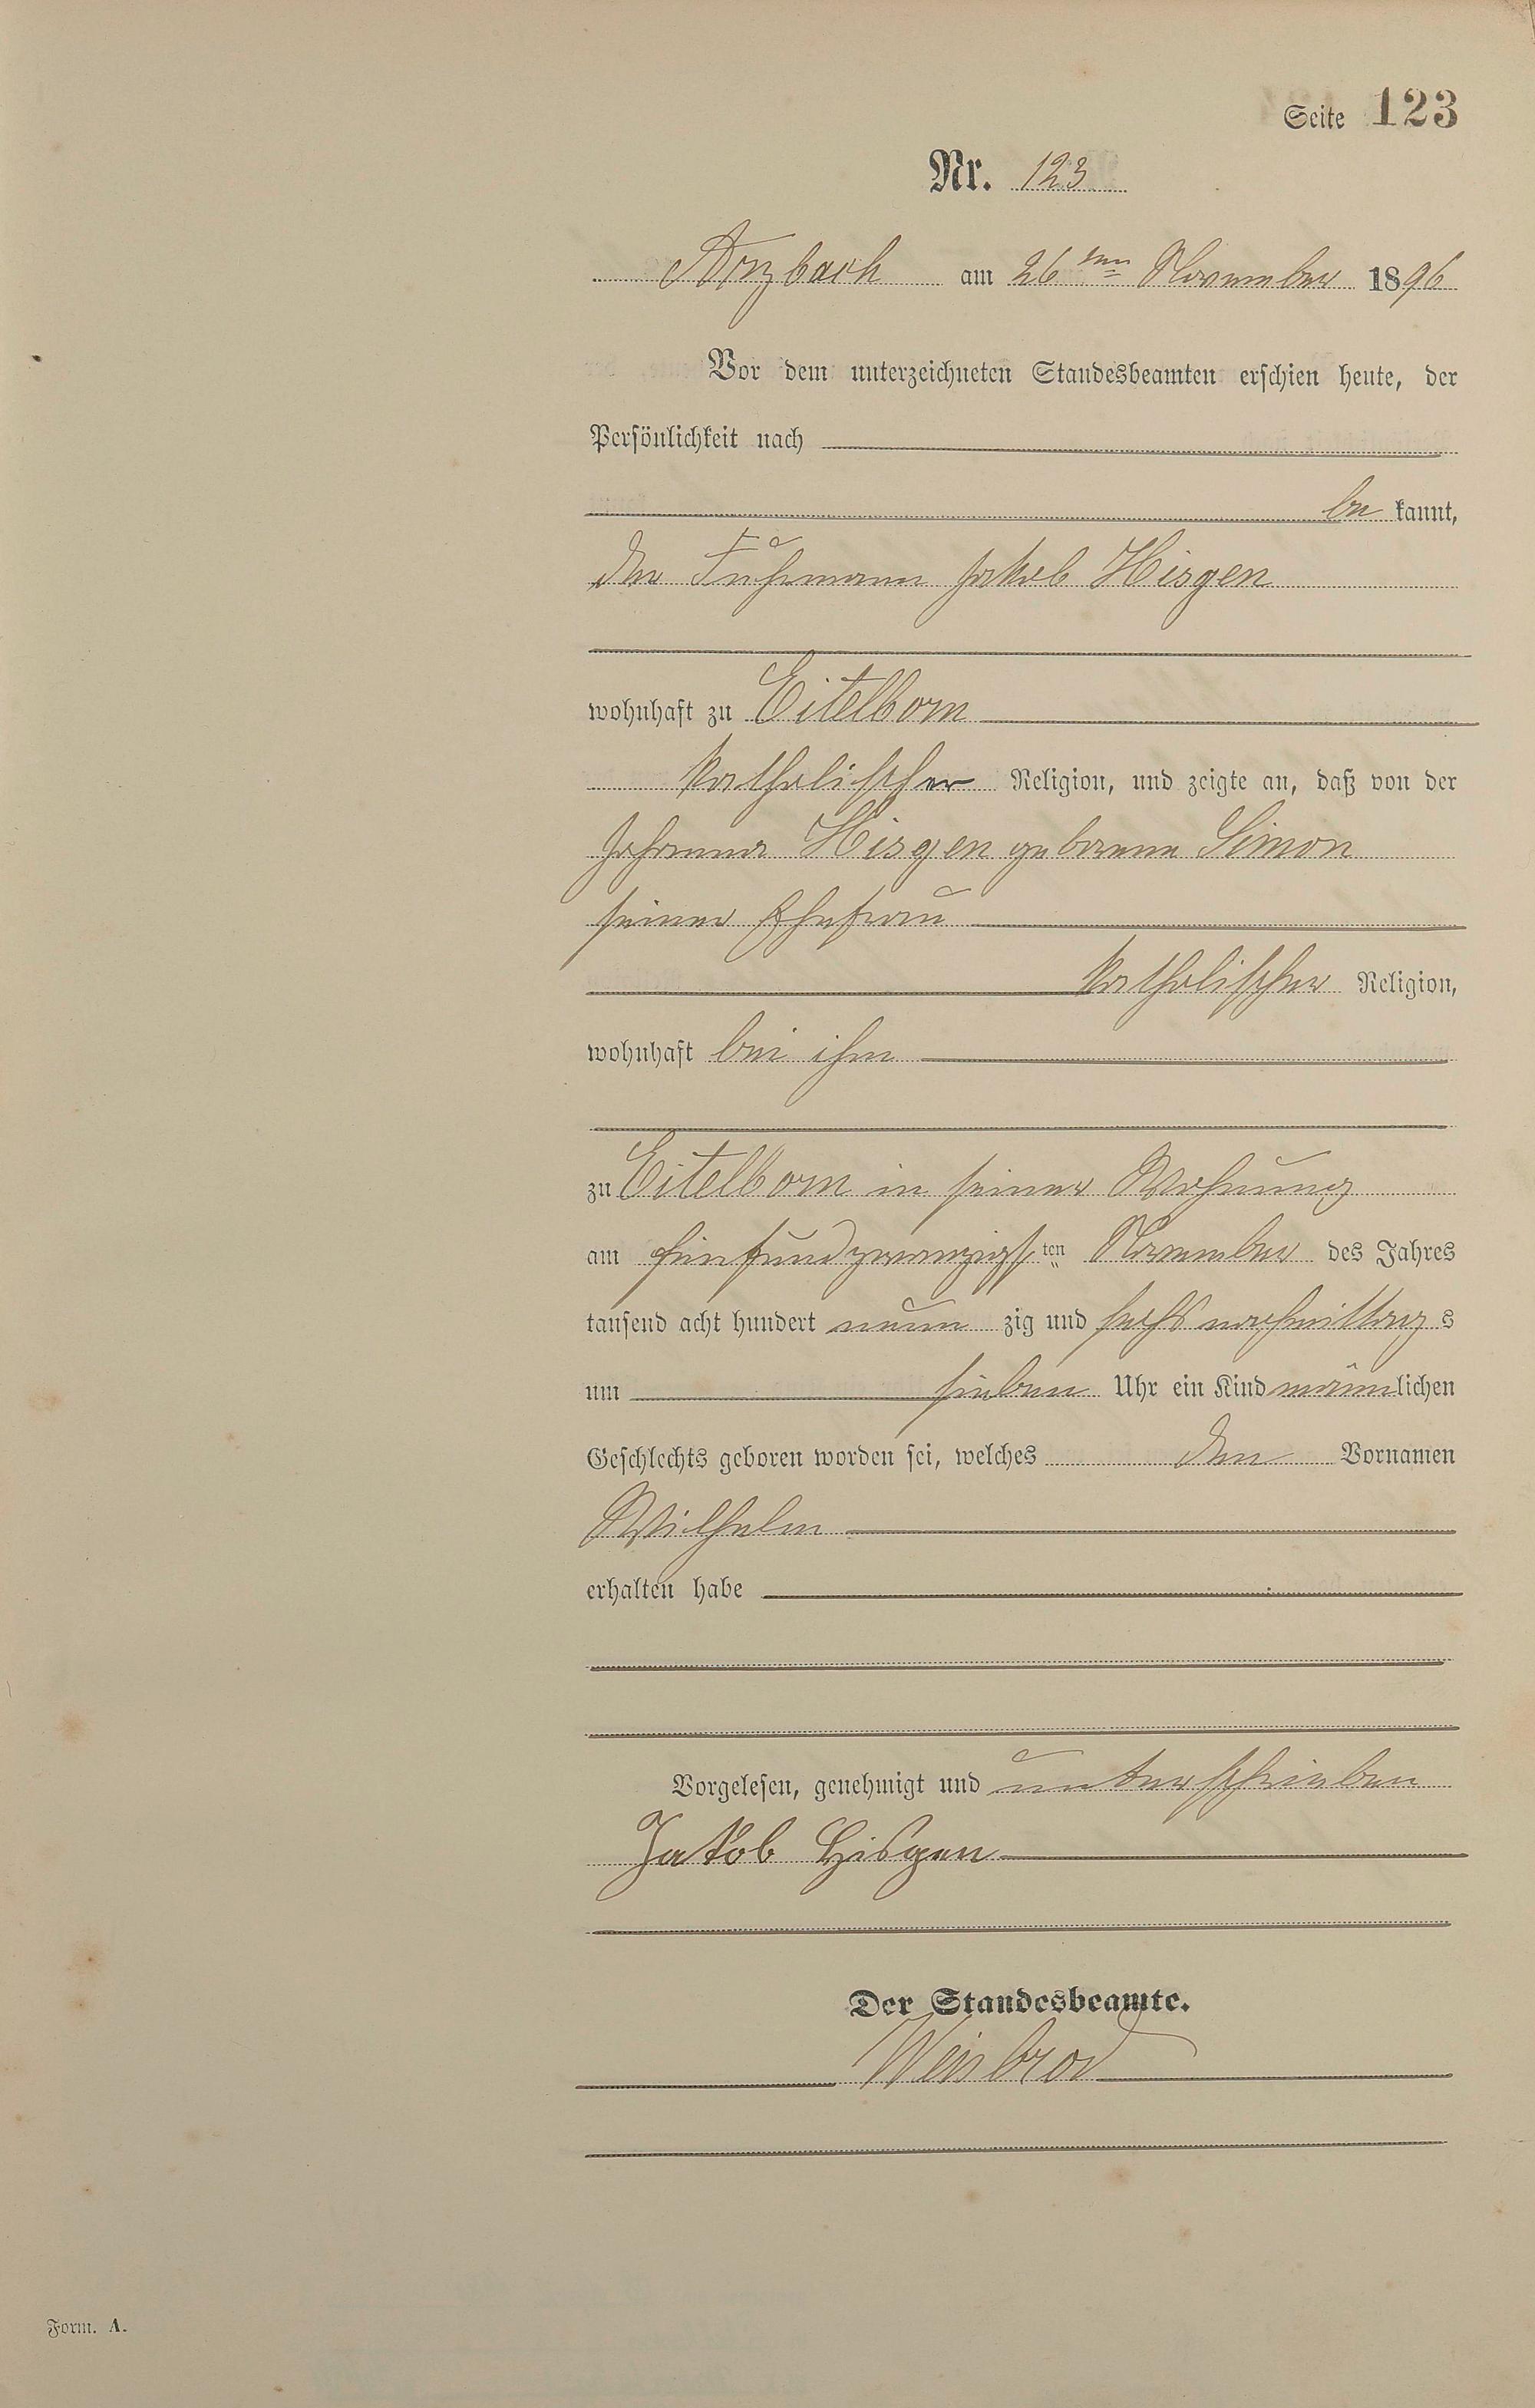 Seite 123
Nr. 123
Arzbach am 26ten November 1896
Vor dem unterzeichneten Standesbeamten erschien heute, der
Persönlichkeit nach
be kannt,
der Fuhrmann Jakob Hisgen
wohnhaft zu Eitelborn
katholischer Religion, und zeigte an, daß von der
Johanna Hisgen geborene Simon
seiner Ehefrau
katholischer Religion,
wohnhaft bei ihm
zu Eitelborn in seiner Wohnung
am fünfundzwanzigsten November des Jahres
tausend acht hundert neun zig und sechs nachmittags
um sieben Uhr ein Kind männlichen
Geschlechts geboren worden sei, welches den Vornamen
Wilhelm
erhalten habe
Vorgelesen, genehmigt und unterschrieben
Jakob Hisgen
Der Standesbeamte.
Weisbrod
Form. A.